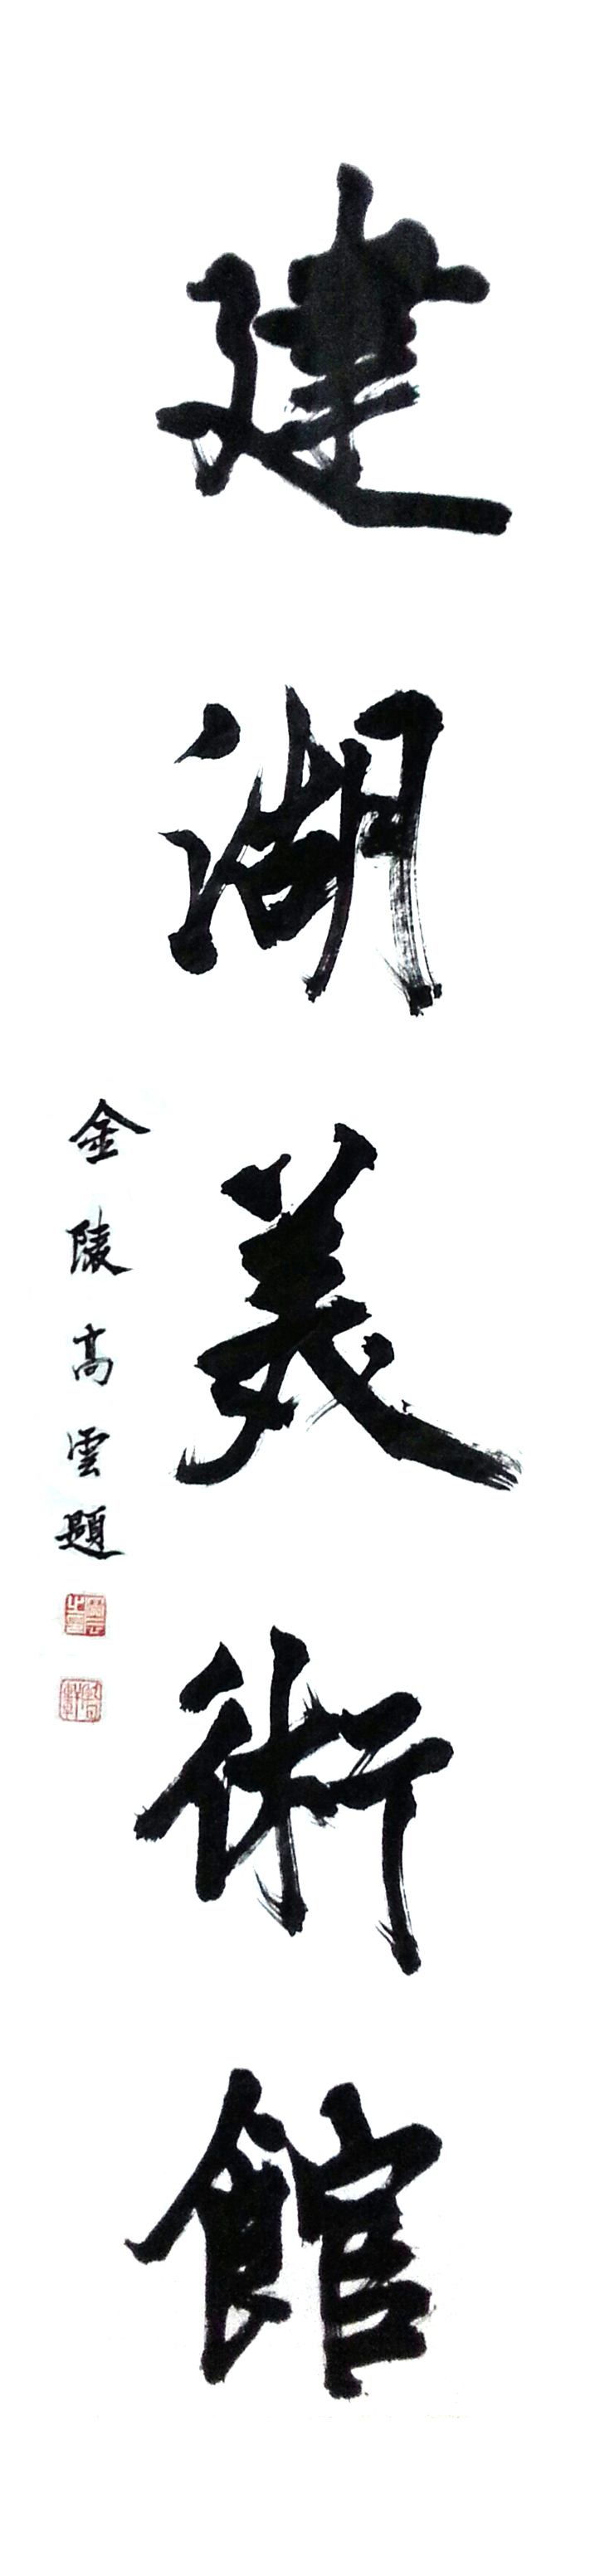 建湖美術館
金陵高雲題